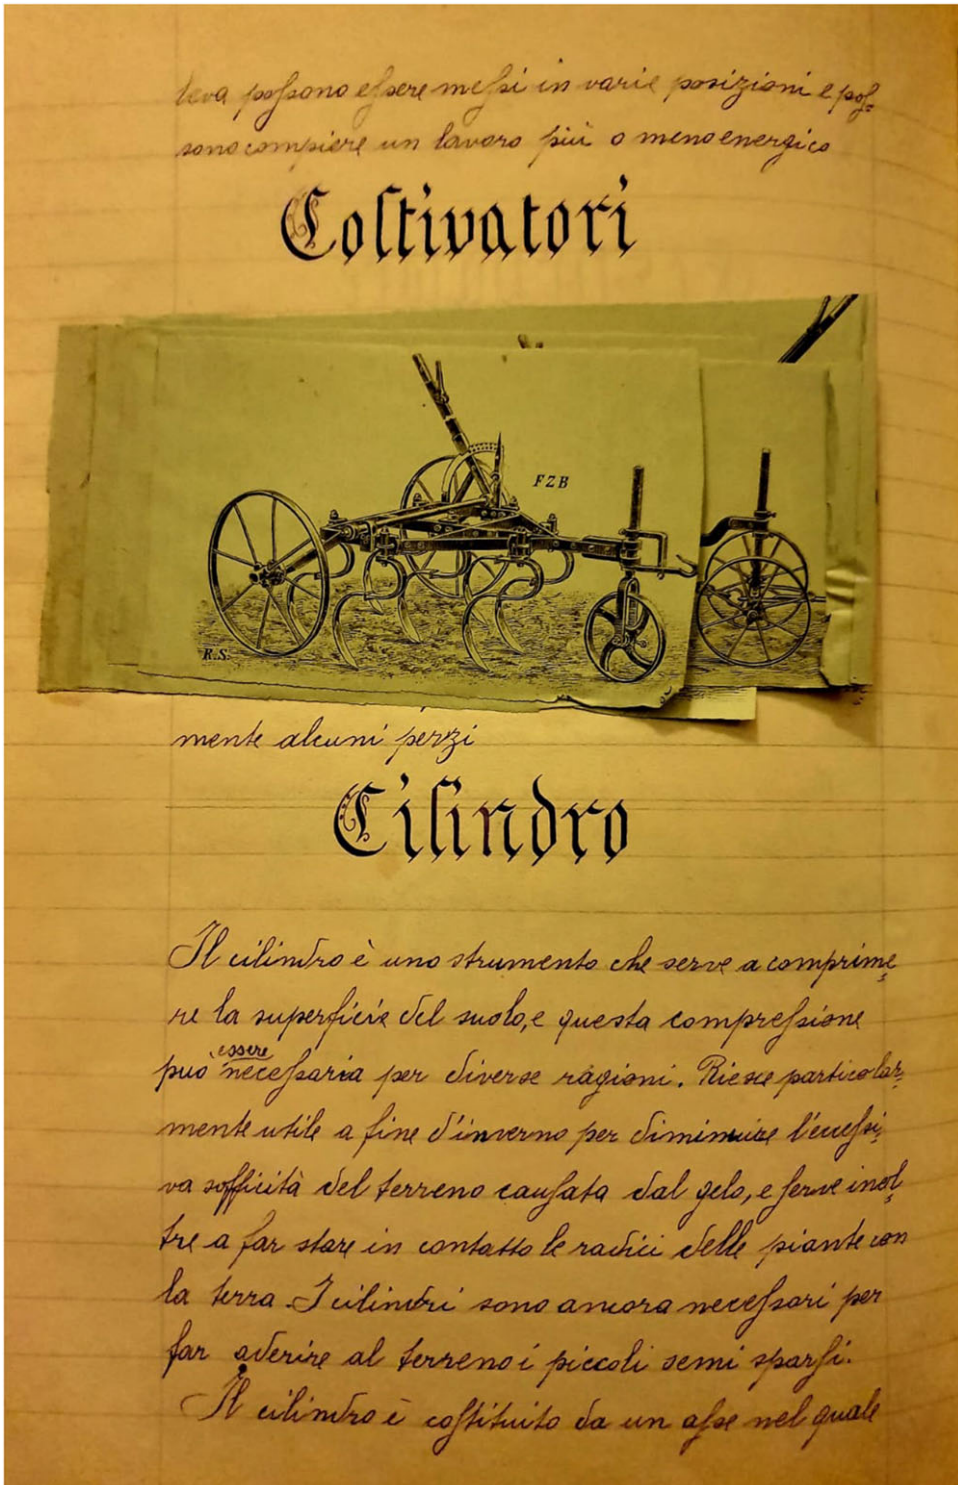 leva possono essere messi in varie posizioni e pos=
sono compiere un lavoro più o meno energico
Coltivatori
FZB
R.S.
mente alcuni perzi
Cilindro
Il cilindro è uno strumento che serve a comprime=
re la superficie del suolo, e questa compressione
può essere necessaria per diverse ragioni. Riesce particolar=
mente utile a fine d'inverno per diminuire l'eccessi=
va sofficità del terreno causata dal gelo, e serve inol=
tre a far stare in contatto le radici delle piante con
la terra. I cilindri sono ancora necessari per
far aderire al terreno i piccoli semi sparsi.
Il cilindro è costituito da un asse nel quale